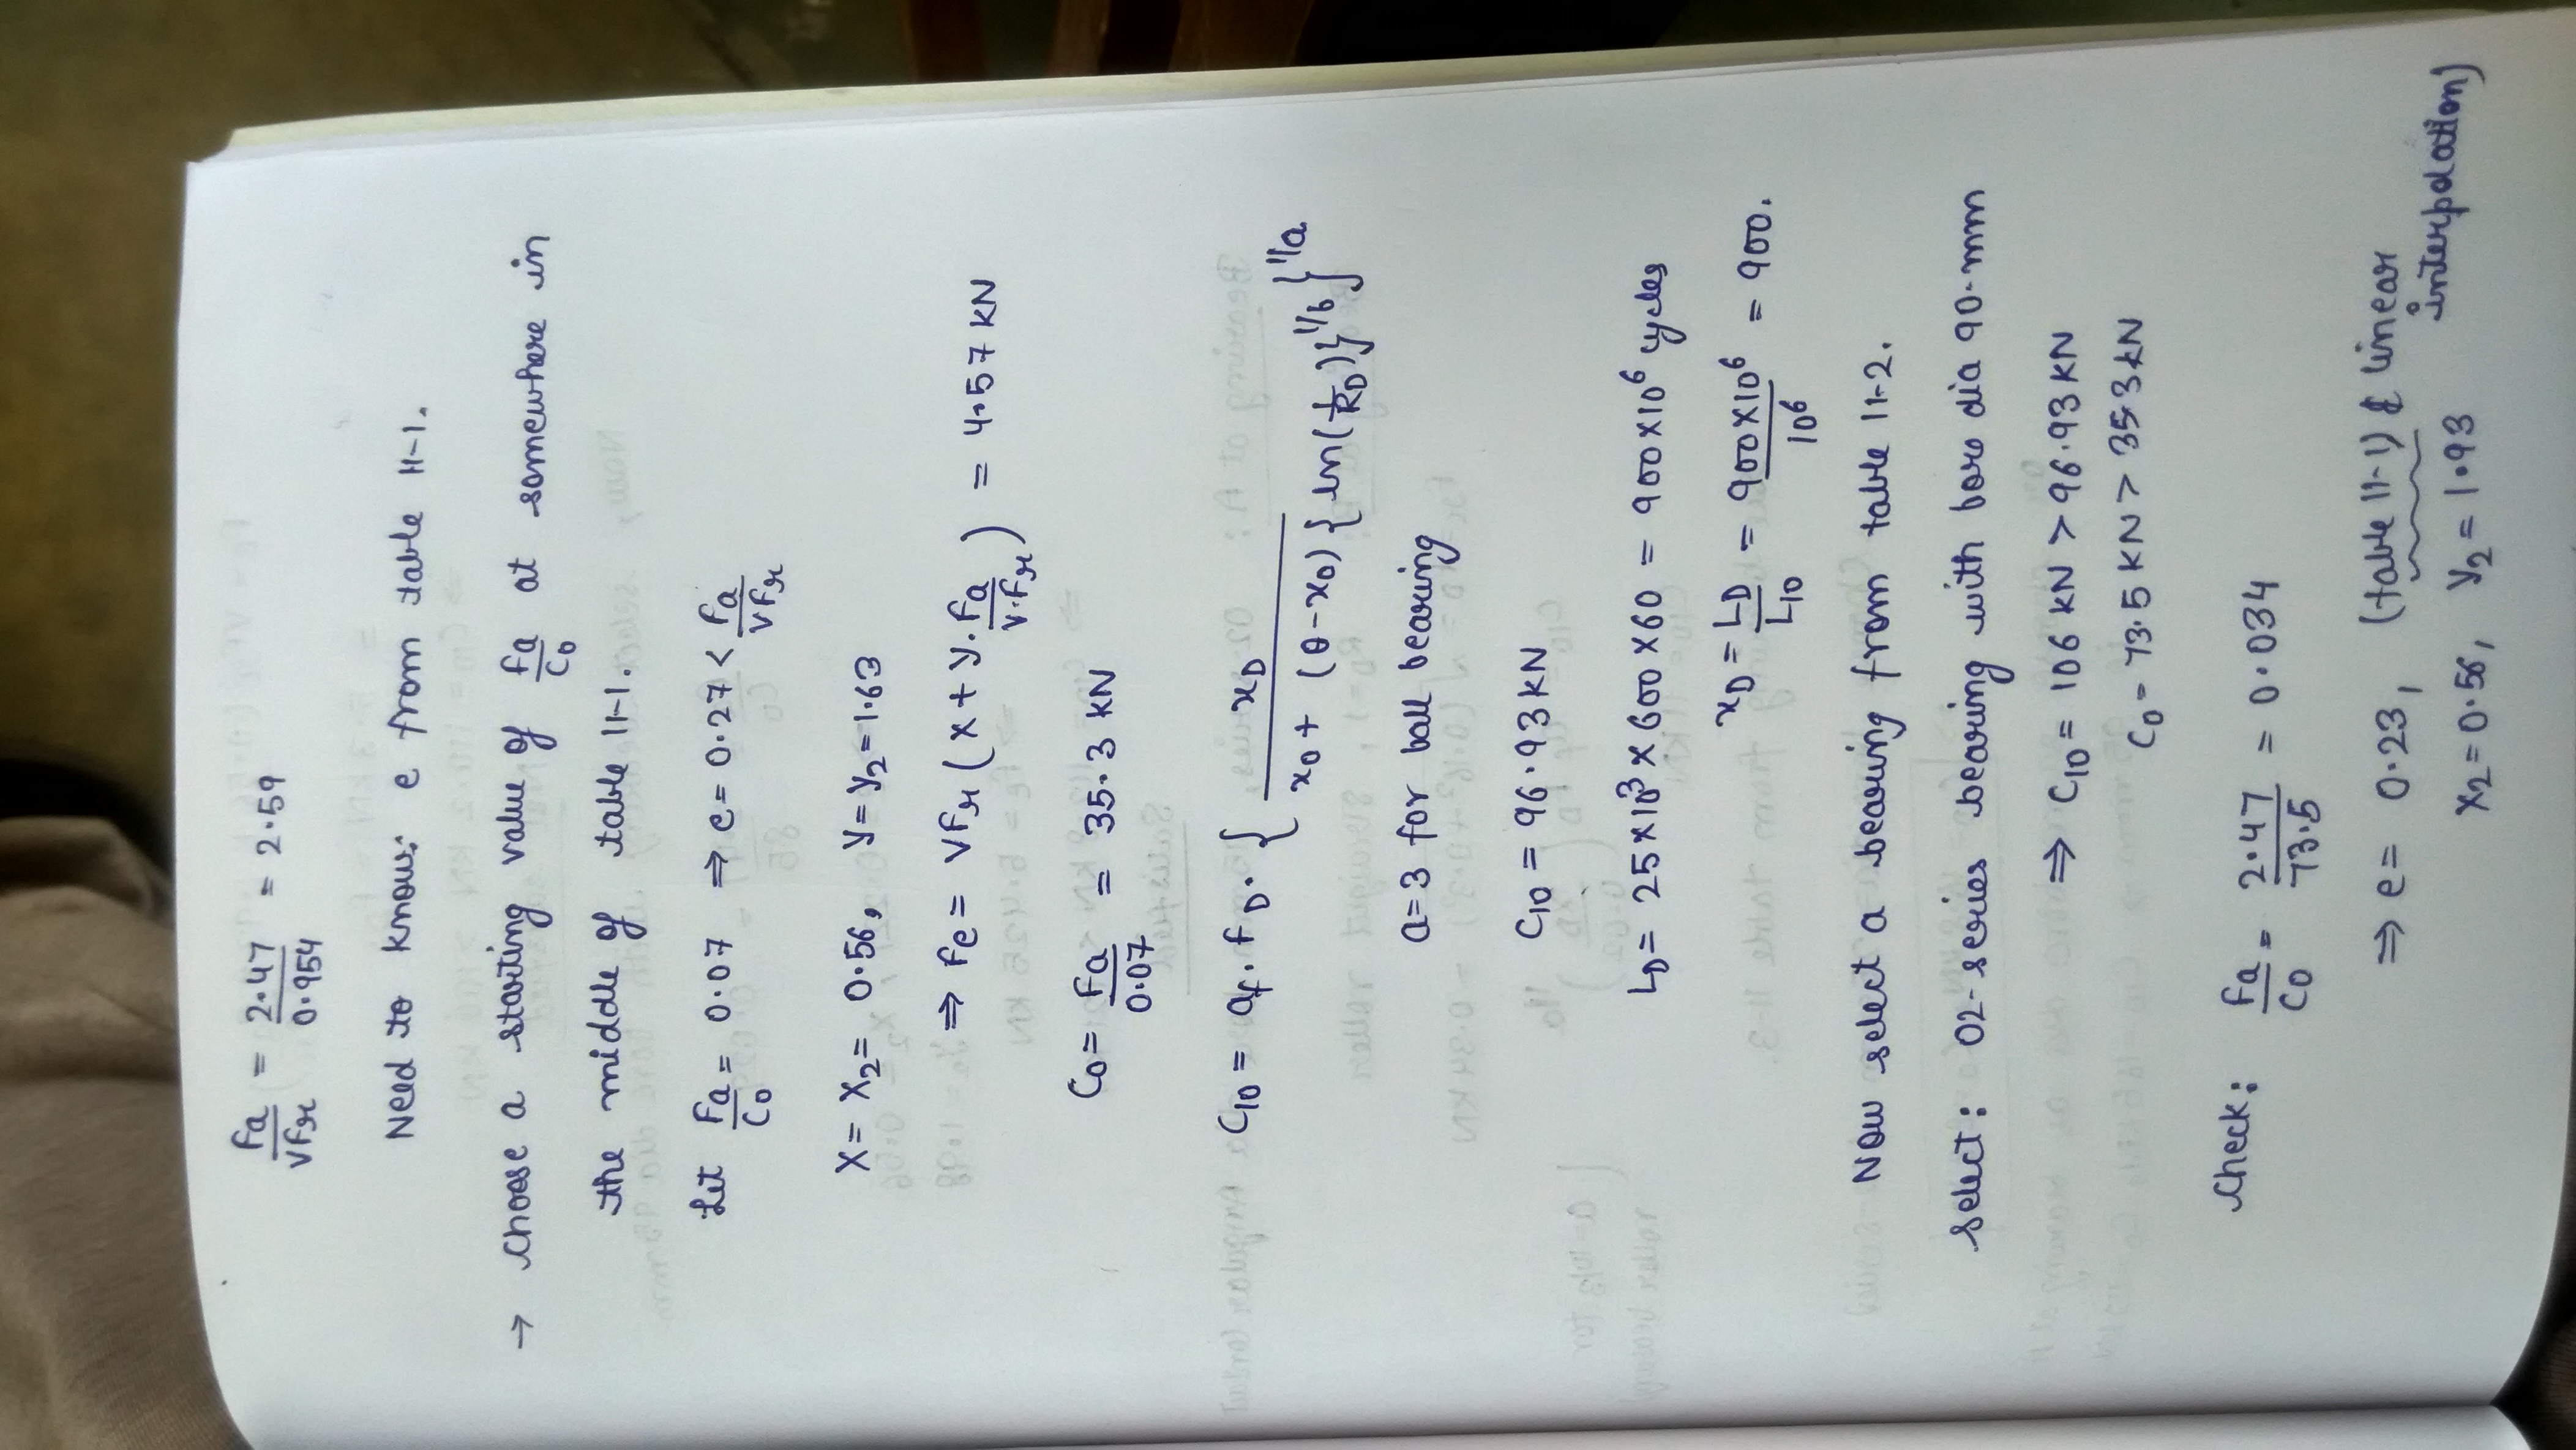 Fa/VFr = 2.47/0.954 = 2.59
Need to know: e from table 11-1.
→ choose a starting value of Fa/C0 at somewhere in
the middle of table 11-1.
Let Fa/C0 = 0.07 ⇒ e = 0.27 < Fa/VFr
X = X2 = 0.56, y = y2 = 1.63
⇒ Fe = VFr (X + y. Fa/V.Fr) = 4.57 KN
C0 = Fa/0.07 = 35.3 KN
C10 = af. FD. { xD / x0 + (θ-x0) { ln(1/RD)}^1/b }^1/a
a=3 for ball bearing
C10 = 96.93 KN
LD = 25×10^3 × 600 × 60 = 900×10^6 cycles
xD = LD/L10 = 900×10^6/10^6 = 900.
Now select a bearing from table 11-2.
Select: 02-series bearing with bore dia 90-mm
⇒ C10 = 106 KN > 96.93 KN
C0 = 73.5 KN > 35.3 KN
Check: Fa/C0 = 2.47/73.5 = 0.034
⇒ e = 0.23, (table 11-1) & linear
interpolation)
X2 = 0.56, y2 = 1.93